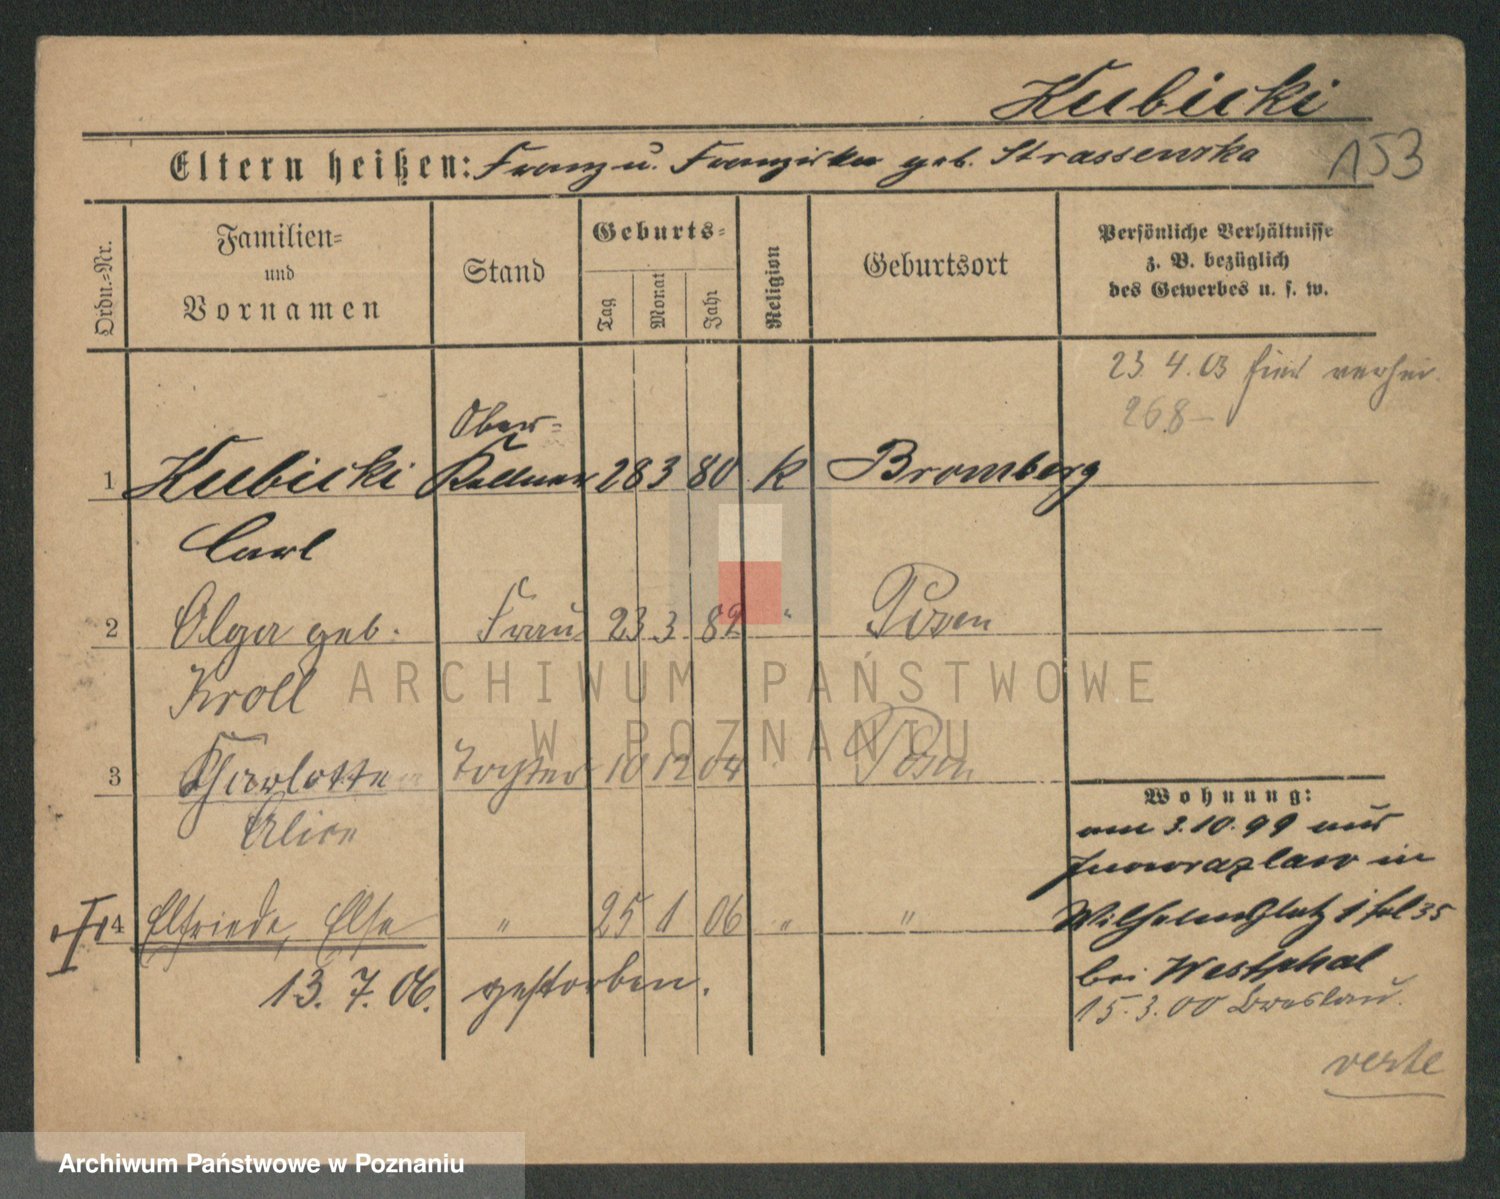 Kubicki
153
Eltern heißen: Franz u. Franziska geb. Strassewska
Ordn.-Nr.
Familien-
und
Vornamen
Stand
Geburts-
Tag
Monat
Jahr
Religion
Geburtsort
Persönliche Verhältnisse
z. B. bezüglich
des Gewerbes u. s. w.
23. 4. 03 hier verhei.
268 –
Ober-
1 Kubicki Kellner 28 3 80 k Bromberg
Carl
2 Olga geb. Frau 23. 3. 82 " Posen
Kroll
3 Charlotte Tochter 10 12 04 " Posen
Alice
4 Elfriede, Else " 25 1 06 " "
13. 7. 06. gestorben.
Wohnung:
am 3.10.99 aus
Inowrazlaw in
Wilhelmsplatz 1 35
bei Westphal
15.3.00 Breslau.
verte
ARCHIWUM PAŃSTWOWE
W POZNANIU
Archiwum Państwowe w Poznaniu